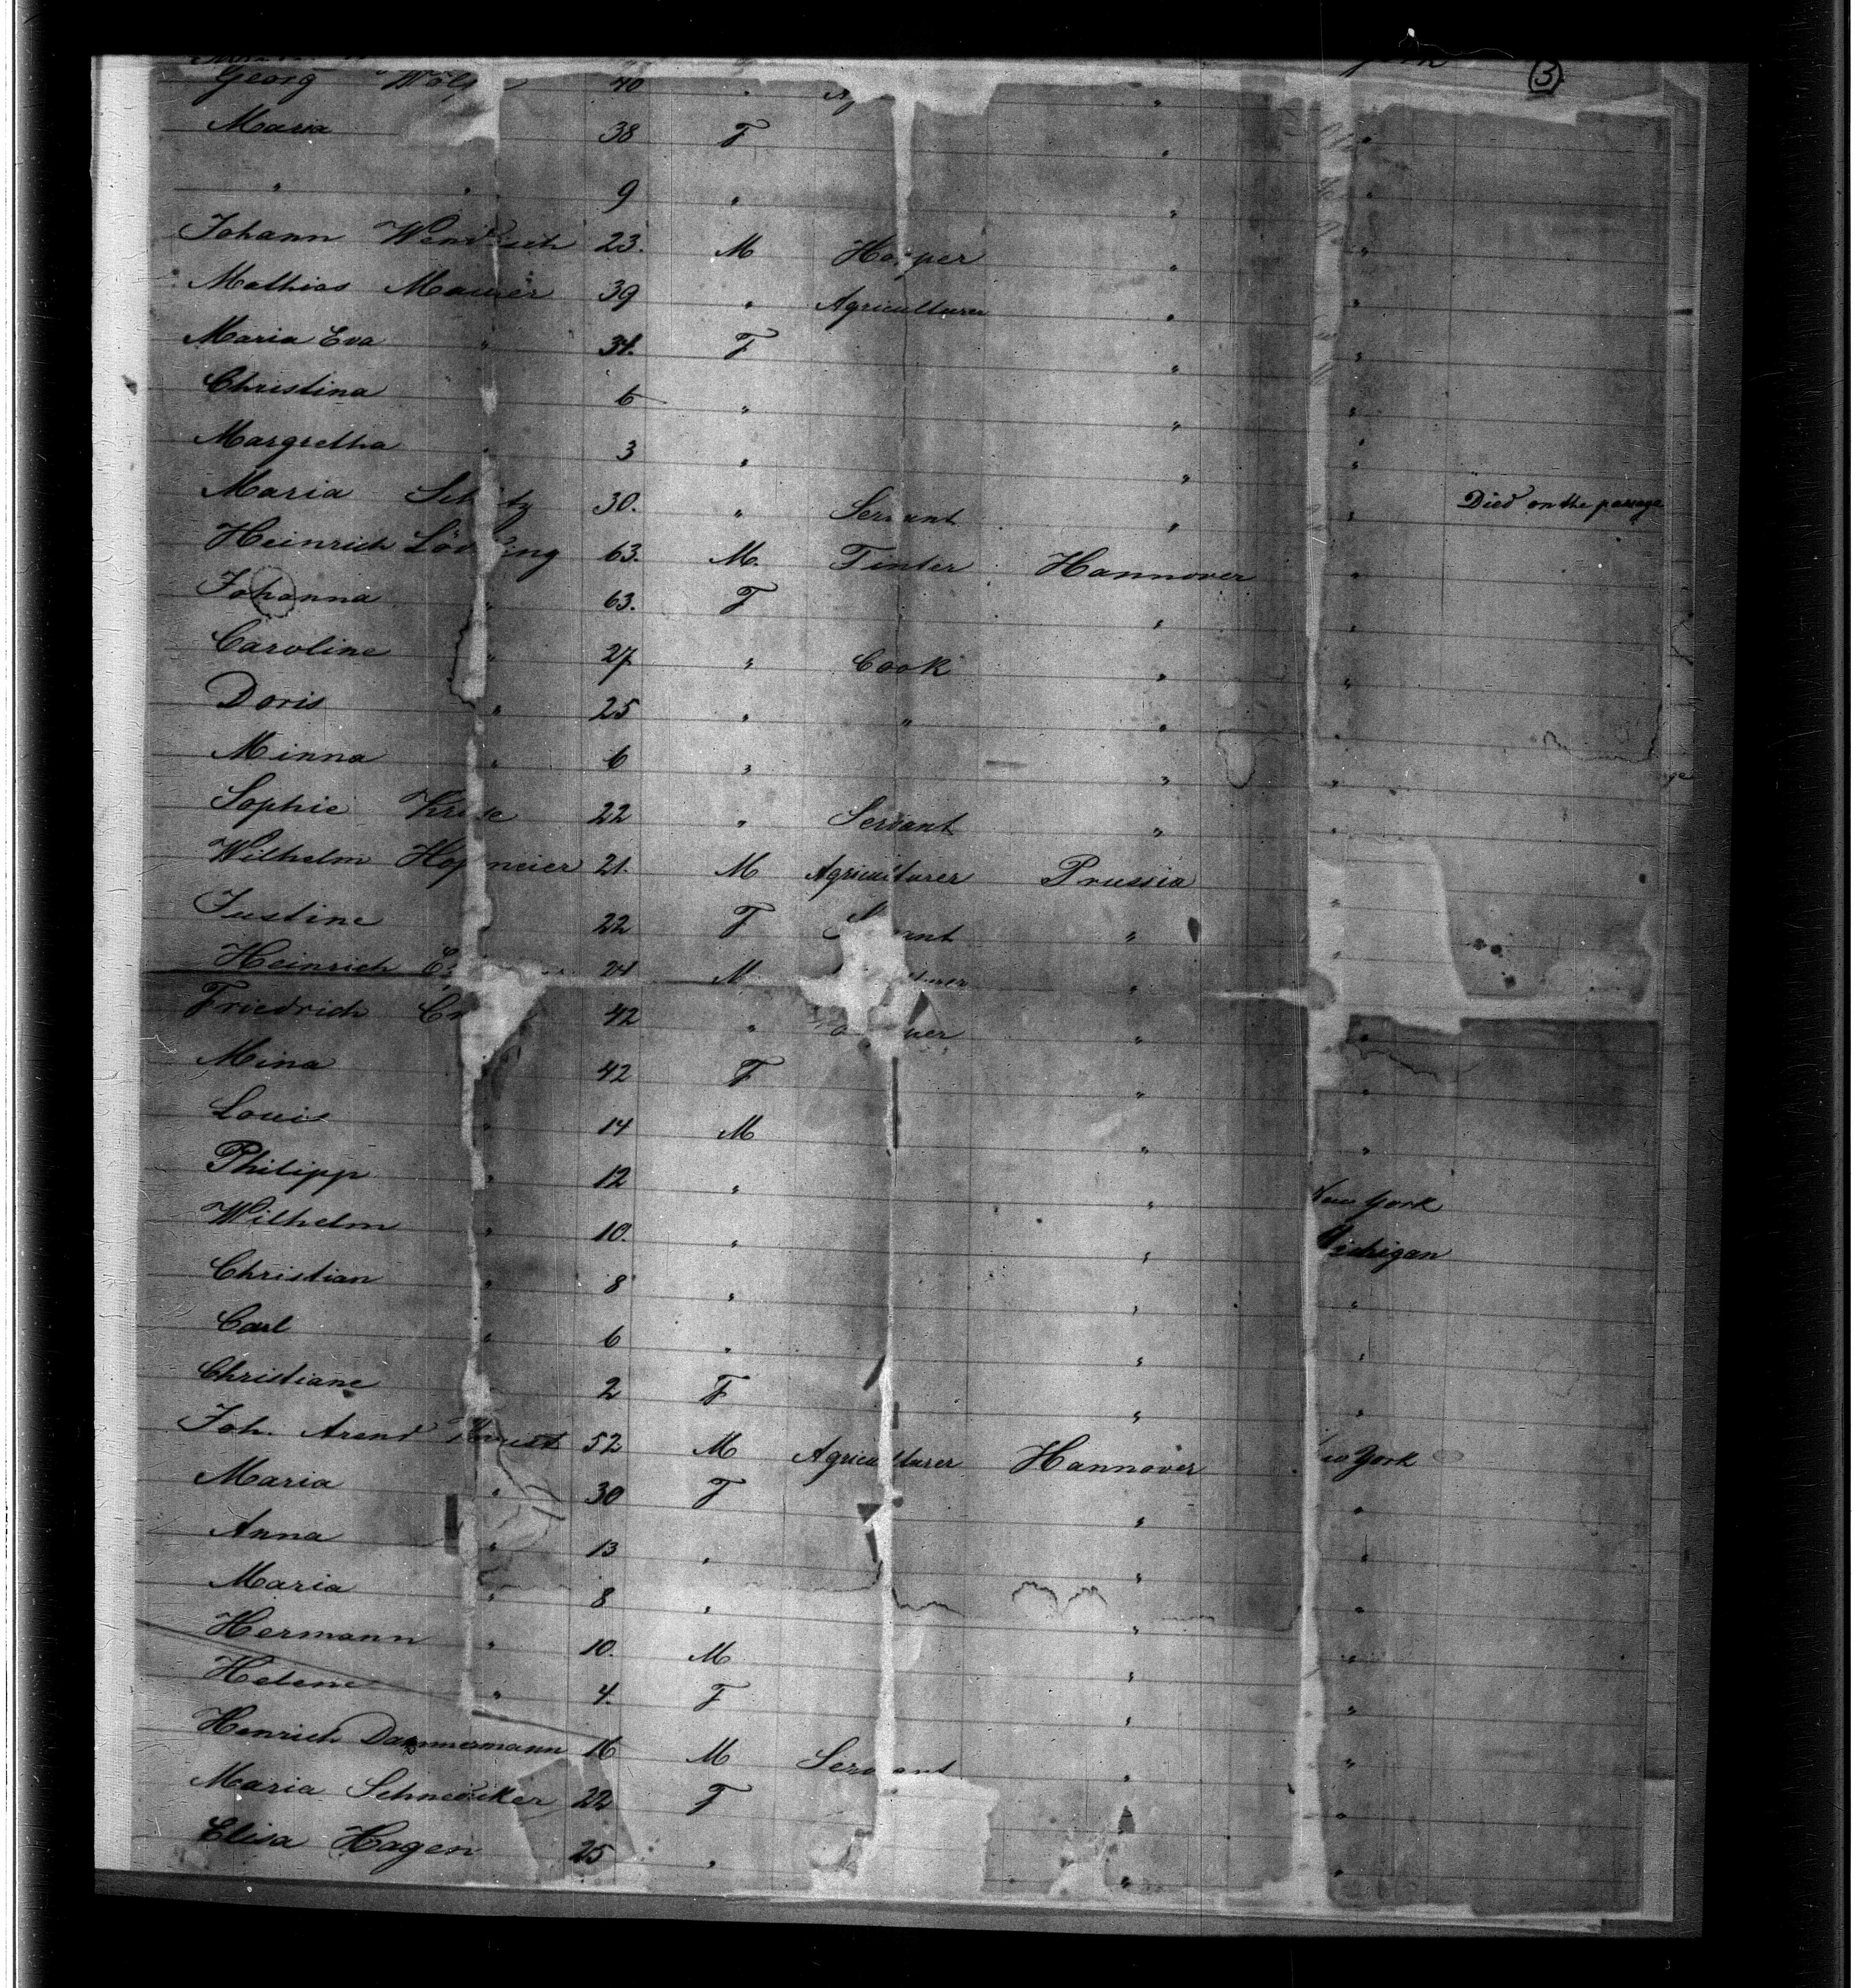 York 3
Georg 40 "
Maria 38 F "
" " 9 " " "
Johann 23. M " "
Mathias Maurer 39 " Agriculturer " "
Maria Eva " 34. F " "
Christina 6 " " "
Margretha " 3 " " "
Maria 30. " Servant " " Died on the passage
Heinrich 63. M. Hannover "
Johanna " 63. F " "
Caroline " 27 " Cook " "
Doris " 25 " " " "
Minna " 6 " " "
Sophie 22 " Servant " "
Wilhelm 21. M Agriculturer Prussia "
Justine 22 F " "
Heinrich 24 M "
Friedrich 42 " " "
Mina 42 F " "
Louis " 14 M " "
Philipp " 12 " " New York
Wilhelm " 10. " " Michigan
Christian " 8 " " "
Carl " 6 " " "
Christiane 2 F " "
Joh. Arend 52 M Agriculturer Hannover New York
Maria " 30 F " "
Anna " 13 " " "
Maria " 8 " " "
Hermann " 10. M " "
Helene " 4. F " "
Henrich Dammermann 16 M Servant " "
Maria 22 F " "
Elisa Hagen 25 " " "